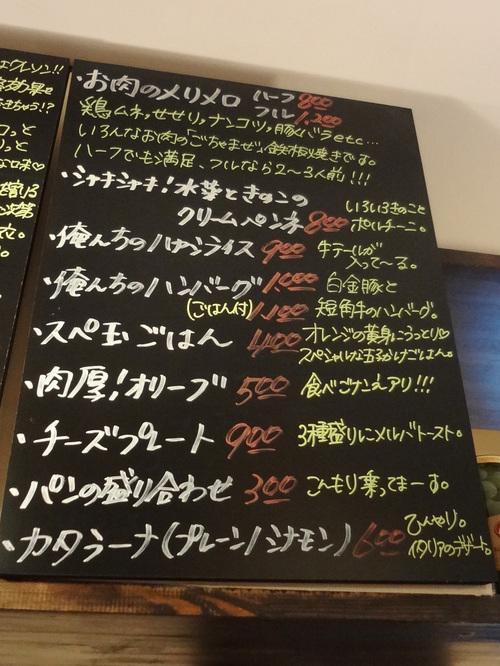 ・お肉のメリメロ ハーフ 800
フル 1,200
鶏ムネ、せせり、ナンコツ、豚バラetc…
いろんなお肉の「ごちゃまぜ」鉄板焼きです。
ハーフでも満足、フルなら2〜3人前!!!
・シャキシャキ!水菜ときのこの
クリームペンネ 800 いろいろきのこと
ポルチーニ。
・俺んちのハヤシライス 900 牛テールが
入って〜る。
・俺んちのハンバーグ 1,000 白金豚と
(ごはん付) 1,100 短角牛のハンバーグ。
・スペ玉ごはん 400 オレンジの黄身にうっとり♡
スペシャルな玉子かけごはん。
・肉厚!オリーブ 500 食べごたえアリ!!!
・チーズプレート 900 3種盛りにメルバトースト。
・パンの盛り合わせ 300 こんもり乗ってまーす。
・カタラーナ(プレーン/シナモン) 600 ひんやり。
イタリアのデザート。